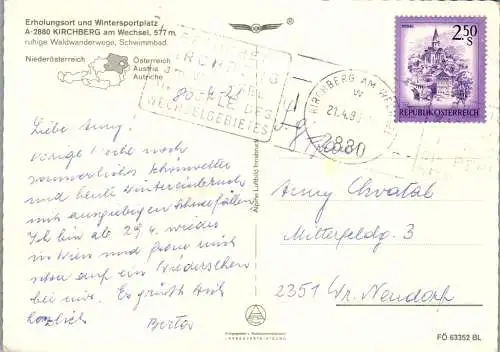 Erholungsort und Wintersportplatz
A-2880 KIRCHBERG am Wechsel, 577 m,
ruhige Waldwanderwege, Schwimmbad.
Niederösterreich
Österreich
Austria
Autriche
KIRCHBERG
PERLE DES
WECHSELGEBIETES
KIRCHBERG AM WECHSEL
21.4.8
2880
2.50 S
REPUBLIK ÖSTERREICH
Liebe Anny.
Vorige Woche noch
sommerliches Schönwetter
und heute Wintereinbruch
mit ausgiebigen Schneefällen
Ich bin ab 29.4. wieder
in Wien und freue mich
schon auf ein Wiedersehen
bei mir. Es grüßt Dich
herzlich Berta
Alpine Luftbild Innsbruck
Anny Chvatal
Mitterfeldg. 3
2351 Wr. Neudorf
FÖ 63352 BL